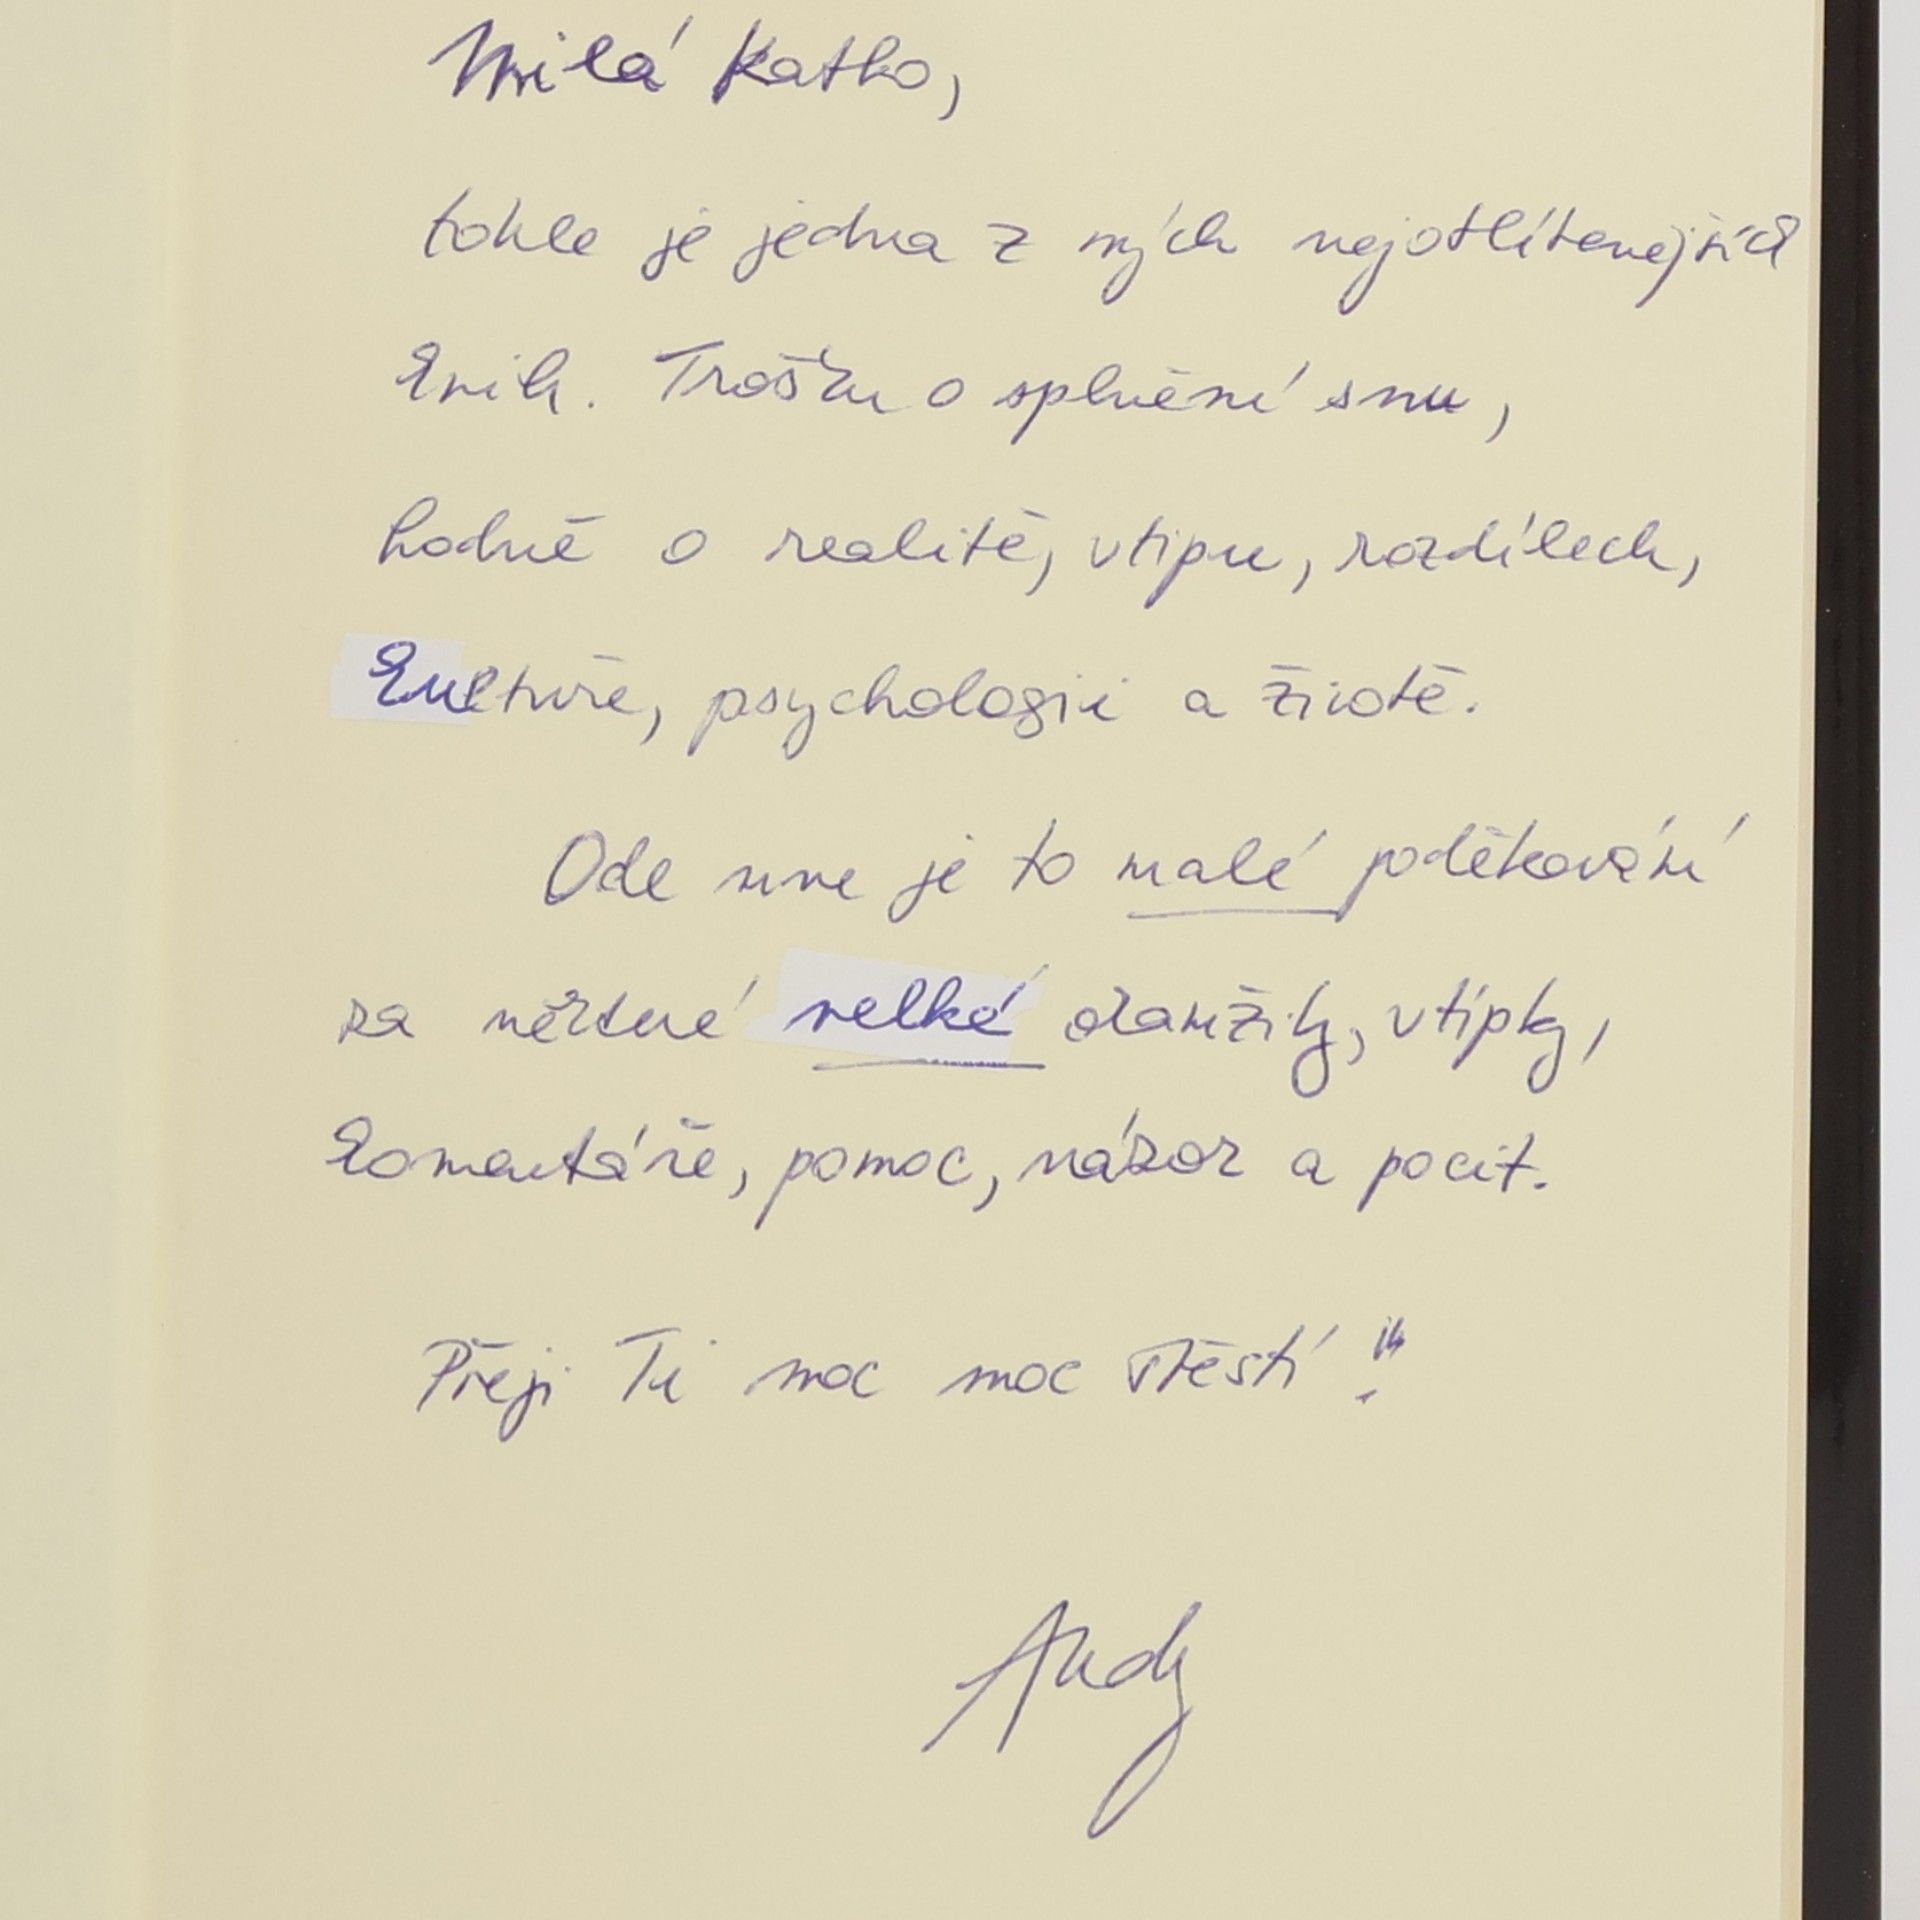 Milá Katko,
tohle je jedna z mých nejoblíbenějších
knih. Trošku o splnění snu,
hodně o realitě, vtipu, rozdílech,
kultuře, psychologii a životě.
Ode mne je to malé poděkování
za některé velké okamžiky, vtípky,
komentáře, pomoc, názor a pocit.
Přeji Ti moc moc štěstí!!!
Andy